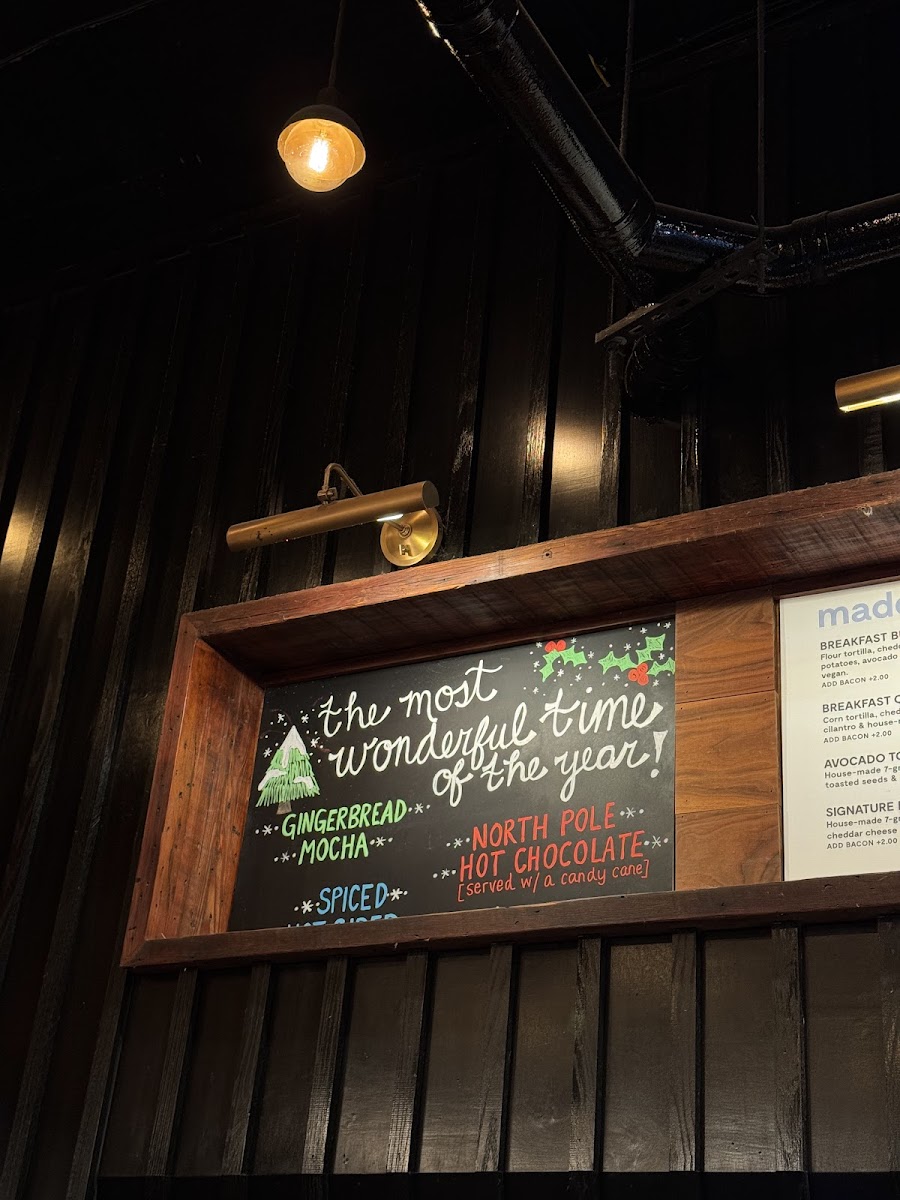 the most
wonderful time
of the year!
GINGERBREAD
MOCHA
NORTH POLE
HOT CHOCOLATE
[served w/ a candy cane]
SPICED
HOT CIDER
H
made
BREAKFAST
Flour tortilla,
potatoes, avocado
vegan.
ADD BACON +2.00
BREAKFAST
Corn tortilla,
cilantro &
ADD BACON +2.00
AVOCADO
House-made
toasted seeds &
SIGNATURE
House-made
cheddar cheese
ADD BACON +2.00